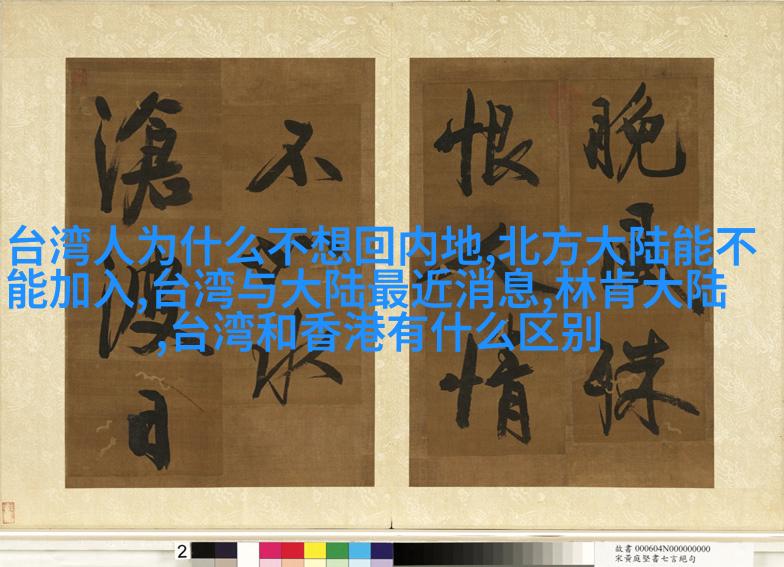 台湾人为什么不想回内地,北方大陆能不
能加入,台湾与大陆最近消息,林肯大陆
,台湾和香港有什么区别
晚
恨情
不水
滄波日
2
故書 000604N000000000
宋黃庭堅書七言絕句